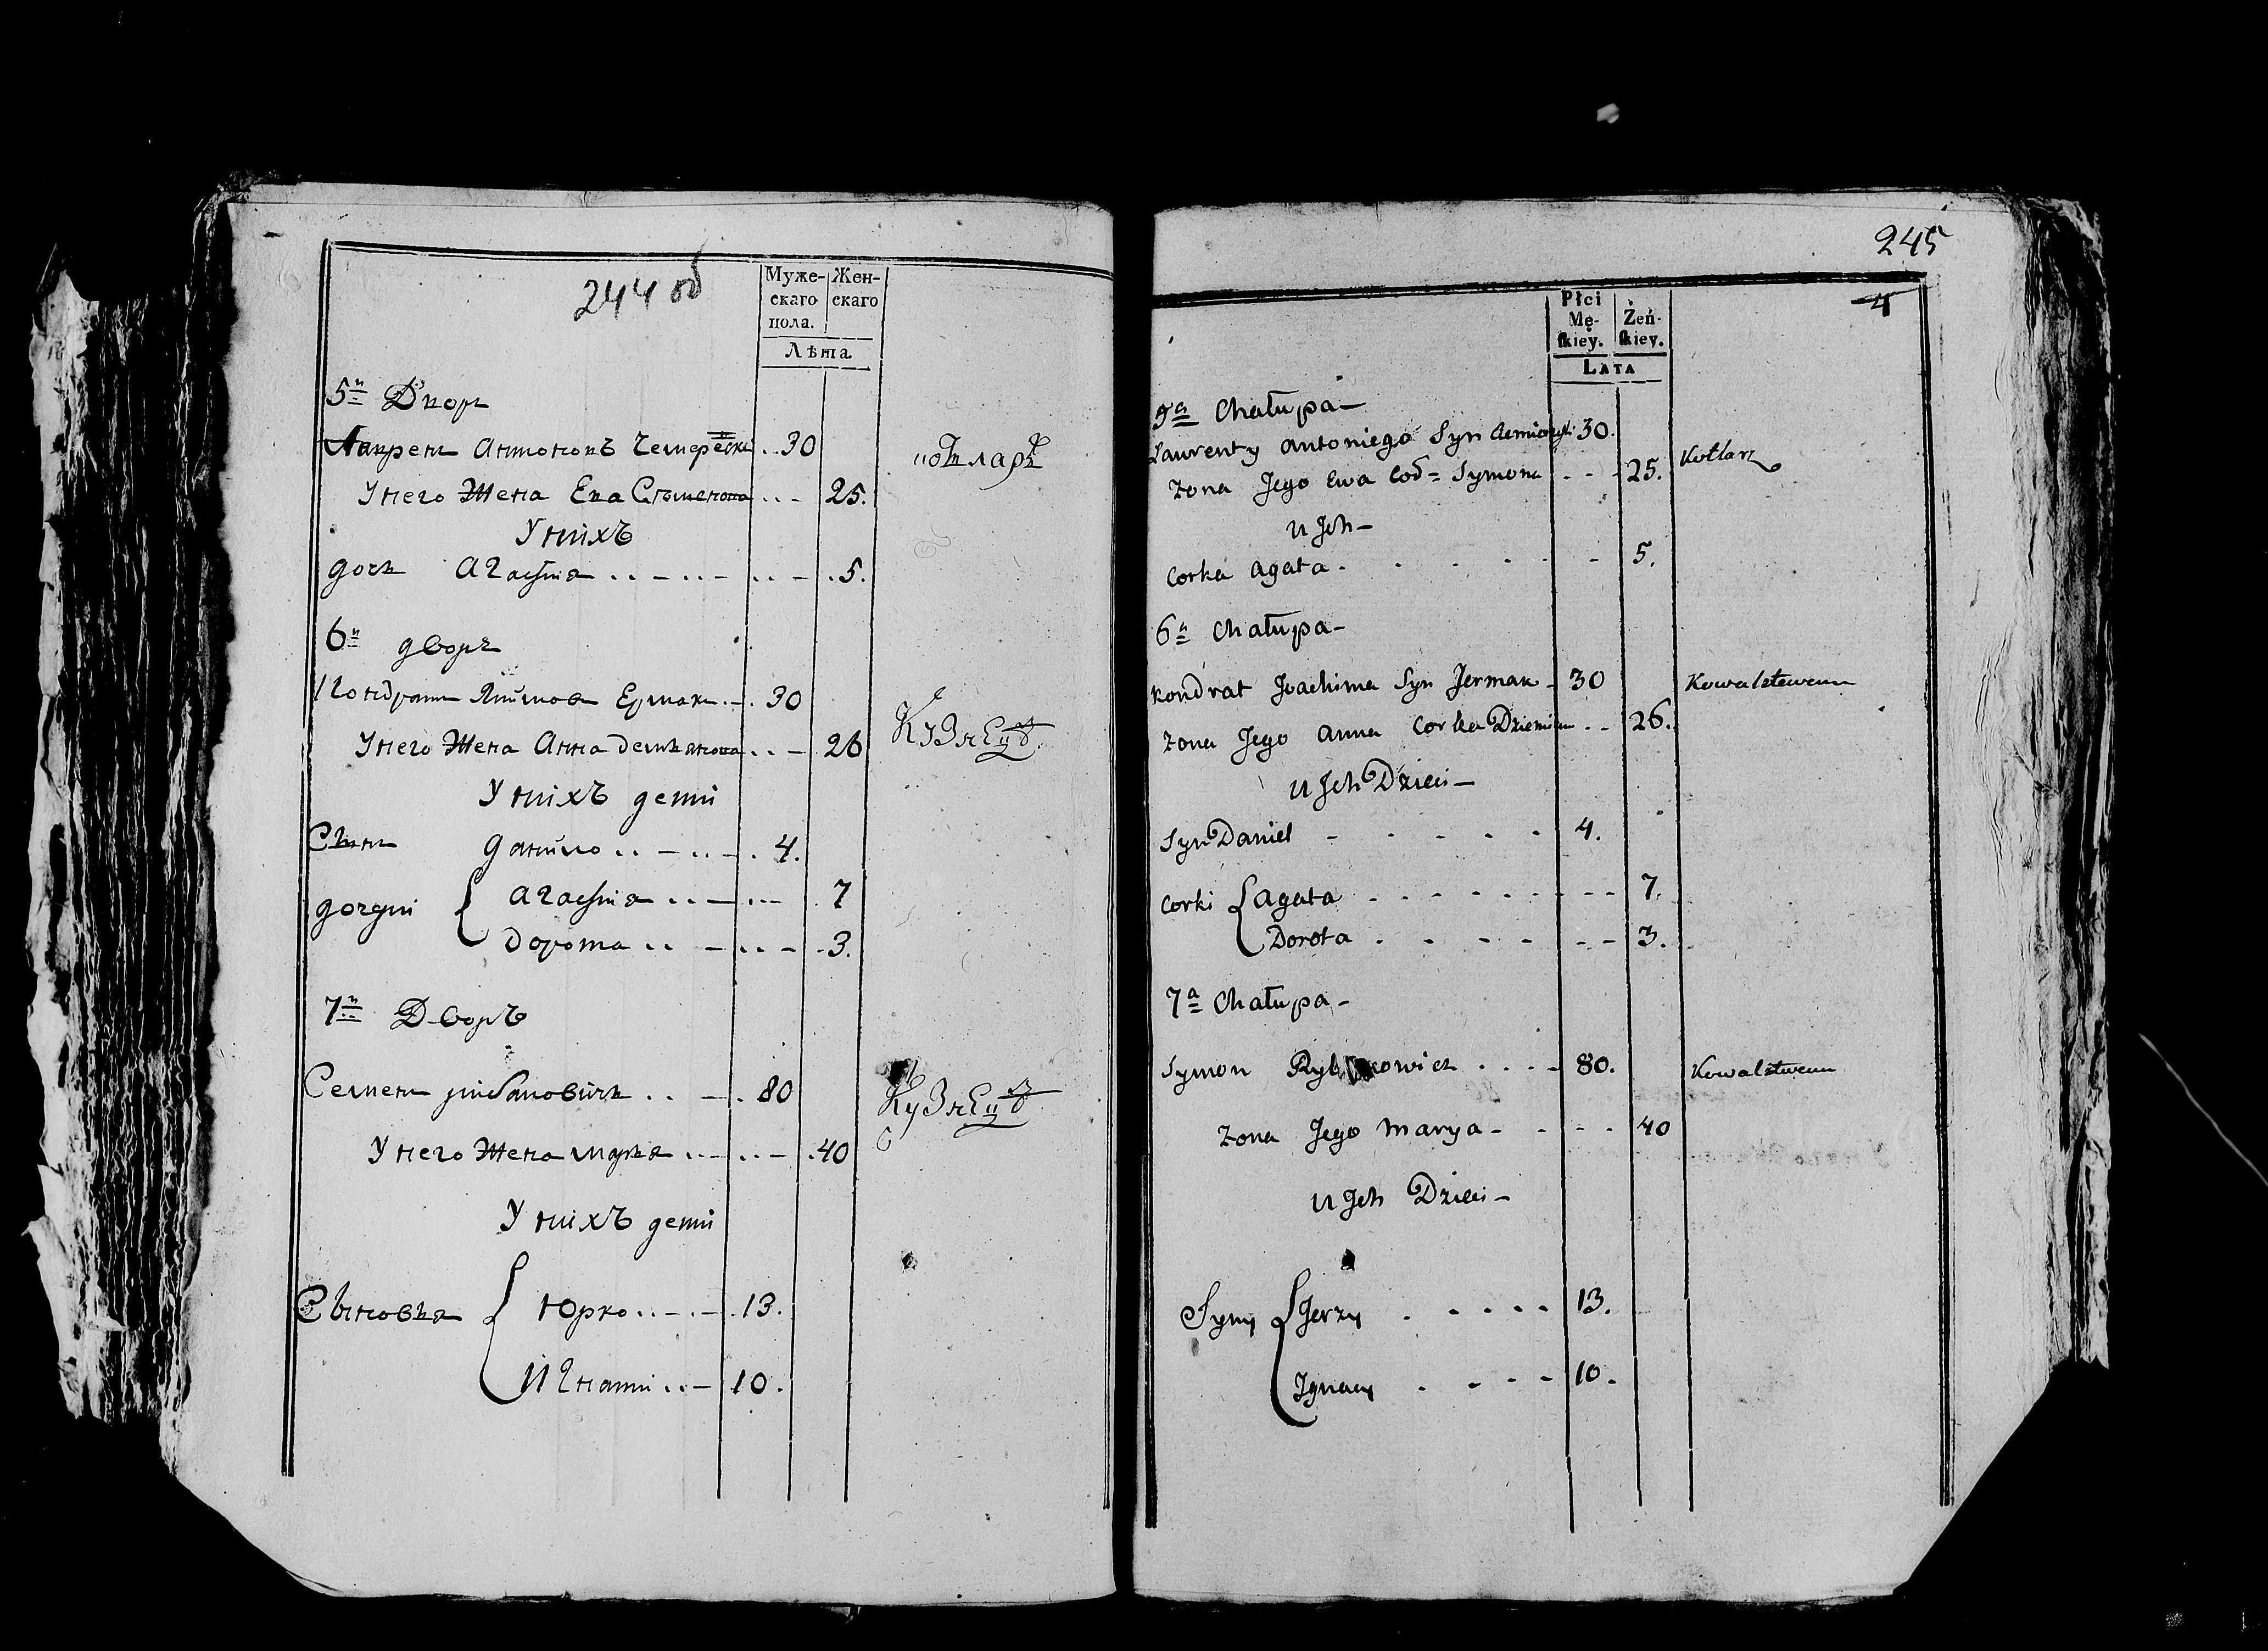 244 об
Муже-
скаго
пола.
Жен-
скаго
Лѣта
5й Дворъ
Лаврен Антоновъ 30
котларъ
У него Жена Ева Семенова 25.
У нихъ
дочь Агафия 5.
6й дворъ
Кондрат Якимов Ермак 30
Кузнецъ
У него Жена Анна Демянова 26
У нихъ дети
Сын Данило 4.
дочери { Агафия 7
Дорота 3.
7й Дворъ
Семен Рибаковичь 80
Кузнецъ
У него Жена Маря 40
У нихъ дети
Сыновья { Юрко 13.
Игнати 10.
245
4
Płci
Mę-
skiey.
Żeń-
skiey.
LATA
5a Chałupa
Laurenty Antoniego Syn 30.
Kotlarz
Zona Jego Ewa Cod= Symona 25.
U Jch
Corka Agata 5.
6a Chałupa
Kondrat Joachima Syn Jermak 30
Kowalstwem
Zona Jego Anna Corka 26.
U Jch Dzieci
Syn Daniel 4.
Corki { Agata 7.
Dorota 3.
7a Chałupa
Symon 80.
Kowalstwem
Zona Jego Marya 40
U Jch Dzieci
Syny { Jerzy 13.
Ignacy 10.